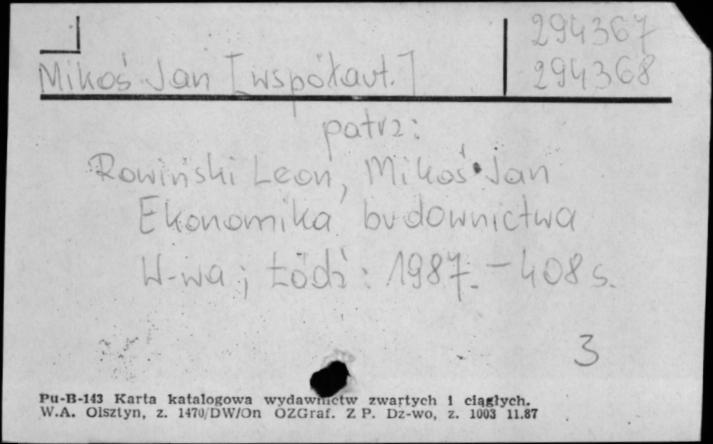 294367
Mikoś Jan [współaut.] 294368
patrz:
Rowiński Leon, Mikoś Jan
Ekonomika budownictwa
W-wa; Łódź: 1987. - 408 s.
3
Pu-B-143 Karta katalogowa wydawnictw zwartych i ciągłych.
W.A. Olsztyn, z. 1470/DW/On OZGraf. Z P. Dz-wo, z. 1003 11.87